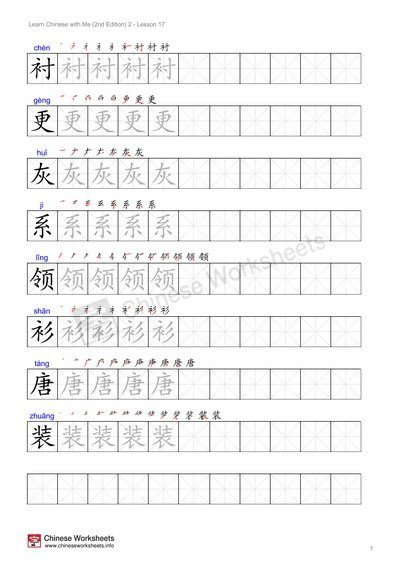 Learn Chinese with Me (2nd Edition) 2 - Lesson 17
chèn
衬 衬 衬 衬 衬
gèng
更 更 更 更 更
huī
灰 灰 灰 灰 灰
jì
系 系 系 系 系
lǐng
领 领 领 领 领
shān
衫 衫 衫 衫 衫
táng
唐 唐 唐 唐 唐
zhuāng
装 装 装 装 装
Chinese Worksheets
Chinese Worksheets
www.chineseworksheets.info
1